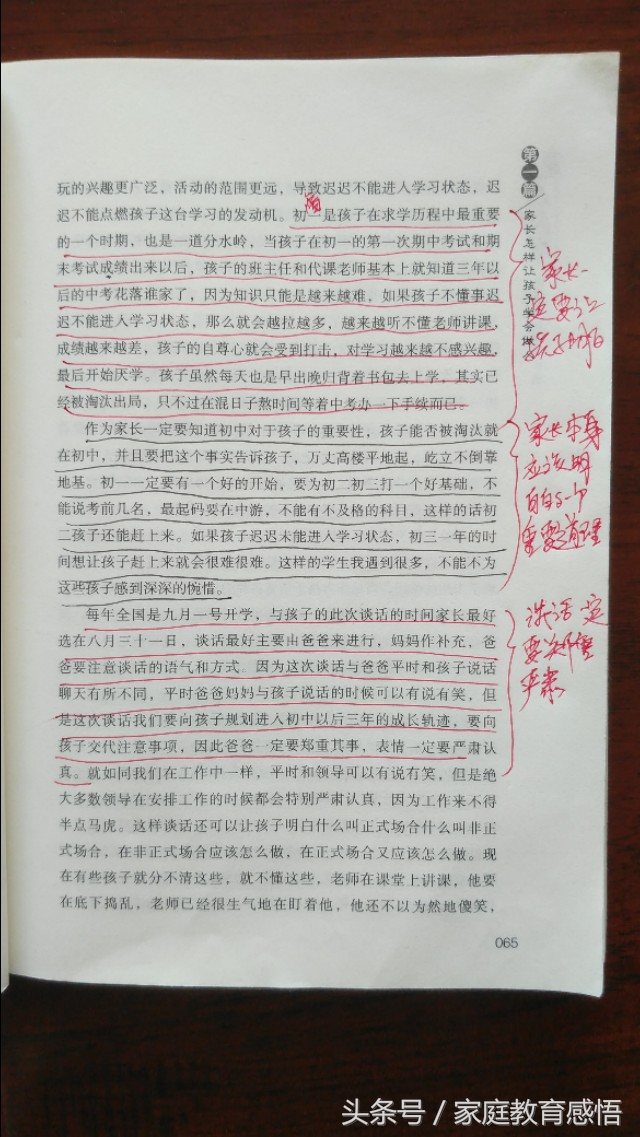 玩的兴趣更广泛，活动的范围更远，导致迟迟不能进入学习状态，迟
迟不能点燃孩子这台学习的发动机。初一是孩子在求学历程中最重要
的一个时期，也是一道分水岭，当孩子在初一的第一次期中考试和期
末考试成绩出来以后，孩子的班主任和代课老师基本上就知道三年以
后的中考花落谁家了，因为知识只能是越来越难，如果孩子不懂事迟
迟不能进入学习状态，那么就会越拉越多，越来越听不懂老师讲课，
成绩越来越差，孩子的自尊心就会受到打击，对学习越来越不感兴趣，
最后开始厌学。孩子虽然每天也是早出晚归背着书包去上学，其实已
经被淘汰出局，只不过在混日子熬时间等着中考办一下手续而已。
作为家长一定要知道初中对于孩子的重要性，孩子能否被淘汰就
在初中，并且要把这个事实告诉孩子，万丈高楼平地起，屹立不倒靠
地基。初一一定要有一个好的开始，要为初二初三打一个好基础，不
能说考前几名，最起码要在中游，不能有不及格的科目，这样的话初
二孩子还能赶上来。如果孩子迟迟未能进入学习状态，初三一年的时
间想让孩子赶上来就会很难很难。这样的学生我遇到很多，不能不为
这些孩子感到深深的惋惜。
每年全国是九月一号开学，与孩子的此次谈话的时间家长最好
选在八月三十一日，谈话最好主要由爸爸来进行，妈妈作补充，爸
爸要注意谈话的语气和方式。因为这次谈话与爸爸平时和孩子说话
聊天有所不同，平时爸爸妈妈与孩子说话的时候可以有说有笑，但
是这次谈话我们要向孩子规划进入初中以后三年的成长轨迹，要向
孩子交代注意事项，因此爸爸一定要郑重其事，表情一定要严肃认
真。就如同我们在工作中一样，平时和领导可以有说有笑，但是绝
大多数领导在安排工作的时候都会特别严肃认真，因为工作来不得
半点马虎。这样谈话还可以让孩子明白什么叫正式场合什么叫非正
式场合，在非正式场合应该怎么做，在正式场合又应该怎么做。现
在有些孩子就分不清这些，就不懂这些，老师在课堂上讲课，他要
在底下捣乱，老师已经很生气地在盯着他，他还不以为然地傻笑，
第一篇
家长怎样让孩子学会
家长一
定要让
孩子明白
家长本身
应该明
白的一个
重要道理
谈话一定
要
严肃
065
头条号／家庭教育感悟